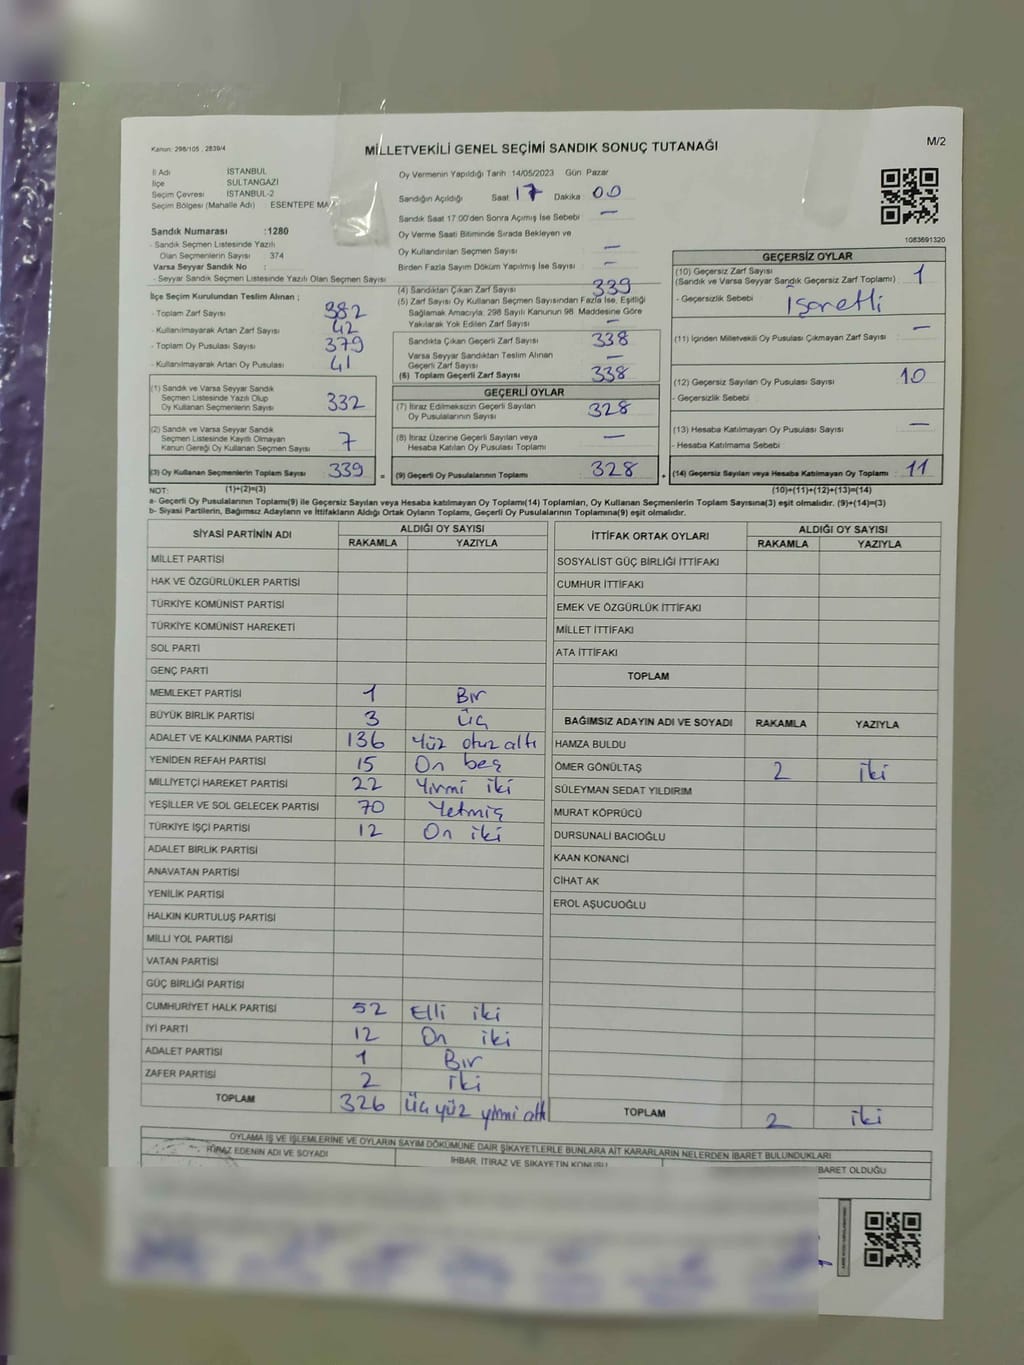 Kanun: 298/105 , 2839/4
MİLLETVEKİLİ GENEL SEÇİMİ SANDIK SONUÇ TUTANAĞI
M/2
İl Adı İSTANBUL
İlçe SULTANGAZİ
Seçim Çevresi İSTANBUL-2
Seçim Bölgesi (Mahalle Adı) : ESENTEPE MA
Sandık Numarası :1280
- Sandık Seçmen Listesinde Yazılı
Olan Seçmenlerin Sayısı : 374
Varsa Seyyar Sandık No :
- Seyyar Sandık Seçmen Listesinde Yazılı Olan Seçmen Sayısı
İlçe Seçim Kurulundan Teslim Alınan ;
- Toplam Zarf Sayısı 382
- Kullanılmayarak Artan Zarf Sayısı 42
- Toplam Oy Pusulası Sayısı 379
- Kullanılmayarak Artan Oy Pusulası 41
(1) Sandık ve Varsa Seyyar Sandık
Seçmen Listesinde Yazılı Olup
Oy Kullanan Seçmenlerin Sayısı 332
(2) Sandık ve Varsa Seyyar Sandık
Seçmen Listesinde Kayıtlı Olmayan
Kanun Gereği Oy Kullanan Seçmen Sayısı 7
(3) Oy Kullanan Seçmenlerin Toplam Sayısı 339
Oy Vermenin Yapıldığı Tarih 14/05/2023 Gün Pazar
Sandığın Açıldığı Saat 17 Dakika 00
Sandık Saat 17:00'den Sonra Açılmış İse Sebebi —
Oy Verme Saati Bitiminde Sırada Bekleyen ve
Oy Kullandırılan Seçmen Sayısı —
Birden Fazla Sayım Döküm Yapılmış İse Sayısı —
(4) Sandıktan Çıkan Zarf Sayısı 339
(5) Zarf Sayısı Oy Kullanan Seçmen Sayısından Fazla İse, Eşitliği
Sağlamak Amacıyla, 298 Sayılı Kanunun 98. Maddesine Göre
Yakılarak Yok Edilen Zarf Sayısı —
Sandıkta Çıkan Geçerli Zarf Sayısı 338
Varsa Seyyar Sandıktan Teslim Alınan
Geçerli Zarf Sayısı —
(6) Toplam Geçerli Zarf Sayısı 338
GEÇERLİ OYLAR
(7) İtiraz Edilmeksizin Geçerli Sayılan
Oy Pusulalarının Sayısı 328
(8) İtiraz Üzerine Geçerli Sayılan veya
Hesaba Katılan Oy Pusulası Toplamı —
= (9) Geçerli Oy Pusulalarının Toplamı 328
1083691320
GEÇERSİZ OYLAR
(10) Geçersiz Zarf Sayısı 1
(Sandık ve Varsa Seyyar Sandık Geçersiz Zarf Toplamı)
- Geçersizlik Sebebi İşaretli
(11) İçinden Milletvekili Oy Pusulası Çıkmayan Zarf Sayısı —
(12) Geçersiz Sayılan Oy Pusulası Sayısı 10
- Geçersizlik Sebebi
(13) Hesaba Katılmayan Oy Pusulası Sayısı —
- Hesaba Katılmama Sebebi
+ (14) Geçersiz Sayılan veya Hesaba Katılmayan Oy Toplamı 11
NOT: (1)+(2)=(3) (10)+(11)+(12)+(13)=(14)
a- Geçerli Oy Pusulalarının Toplamı(9) ile Geçersiz Sayılan veya Hesaba katılmayan Oy Toplamı(14) Toplamları, Oy Kullanan Seçmenlerin Toplam Sayısına(3) eşit olmalıdır. (9)+(14)=(3)
b- Siyasi Partilerin, Bağımsız Adayların ve İttifakların Aldığı Ortak Oyların Toplamı, Geçerli Oy Pusulalarının Toplamına(9) eşit olmalıdır.
SİYASİ PARTİNİN ADI ALDIĞI OY SAYISI
RAKAMLA YAZIYLA
MİLLET PARTİSİ
HAK VE ÖZGÜRLÜKLER PARTİSİ
TÜRKİYE KOMÜNİST PARTİSİ
TÜRKİYE KOMÜNİST HAREKETİ
SOL PARTİ
GENÇ PARTİ
MEMLEKET PARTİSİ 1 Bir
BÜYÜK BİRLİK PARTİSİ 3 üç
ADALET VE KALKINMA PARTİSİ 136 Yüz otuz altı
YENİDEN REFAH PARTİSİ 15 On beş
MİLLİYETÇİ HAREKET PARTİSİ 22 Yirmi iki
YEŞİLLER VE SOL GELECEK PARTİSİ 70 Yetmiş
TÜRKİYE İŞÇİ PARTİSİ 12 On iki
ADALET BİRLİK PARTİSİ
ANAVATAN PARTİSİ
YENİLİK PARTİSİ
HALKIN KURTULUŞ PARTİSİ
MİLLİ YOL PARTİSİ
VATAN PARTİSİ
GÜÇ BİRLİĞİ PARTİSİ
CUMHURİYET HALK PARTİSİ 52 Elli iki
İYİ PARTİ 12 On iki
ADALET PARTİSİ 1 Bir
ZAFER PARTİSİ 2 iki
TOPLAM 326 Üçyüz yirmi altı
İTTİFAK ORTAK OYLARI ALDIĞI OY SAYISI
RAKAMLA YAZIYLA
SOSYALİST GÜÇ BİRLİĞİ İTTİFAKI
CUMHUR İTTİFAKI
EMEK VE ÖZGÜRLÜK İTTİFAKI
MİLLET İTTİFAKI
ATA İTTİFAKI
TOPLAM
BAĞIMSIZ ADAYIN ADI VE SOYADI RAKAMLA YAZIYLA
HAMZA BULDU
ÖMER GÖNÜLTAŞ 2 iki
SÜLEYMAN SEDAT YILDIRIM
MURAT KÖPRÜCÜ
DURSUNALİ BACIOĞLU
KAAN KONANCİ
CİHAT AK
EROL AŞUCUOĞLU
TOPLAM 2 iki
OYLAMA İŞ VE İŞLEMLERİNE VE OYLARIN SAYIM DÖKÜMÜNE DAİR ŞİKAYETLERLE BUNLARA AİT KARARLARIN NELERDEN İBARET BULUNDUKLARI
İTİRAZ EDENİN ADI VE SOYADI İHBAR, İTİRAZ VE ŞİKAYETİN KONUSU BARET OLDUĞU